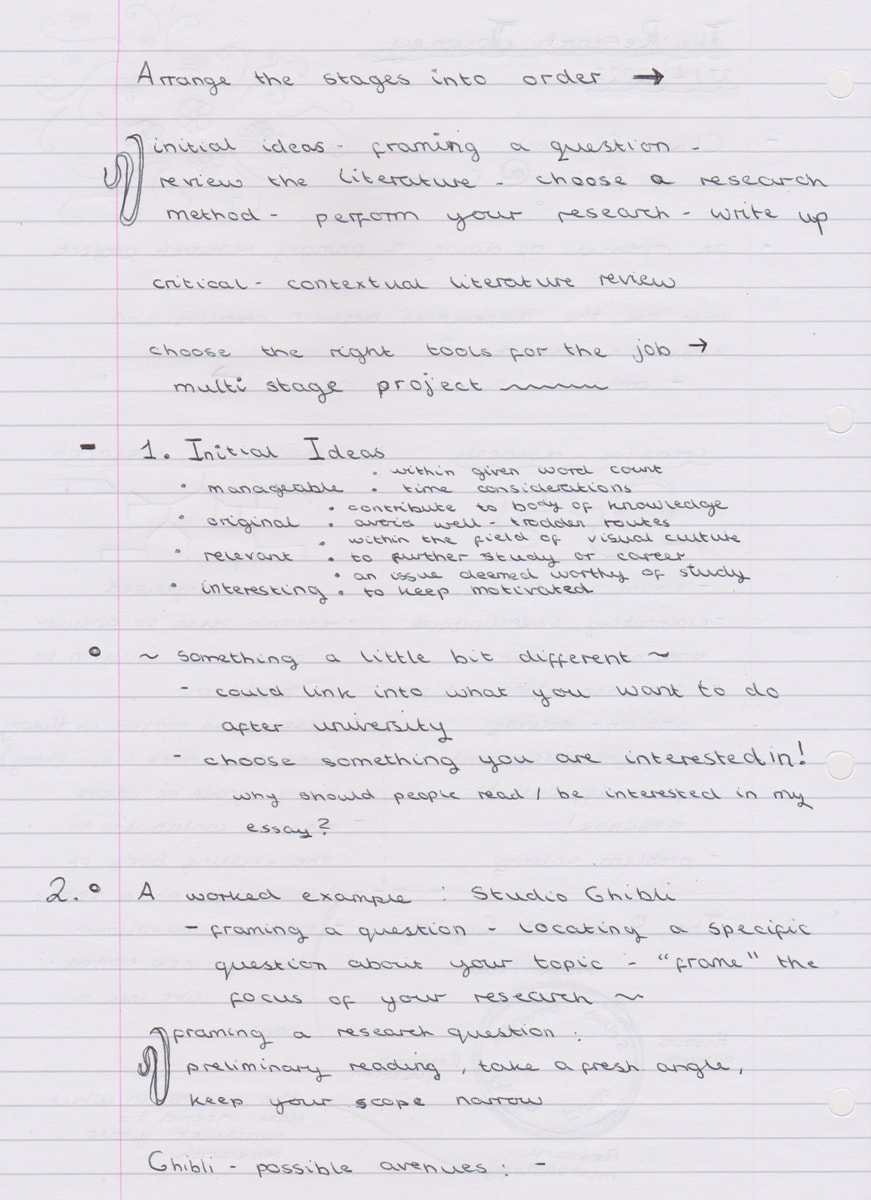 Arrange the stages into order →
initial ideas - framing a question -
review the literature - choose a research
method - perform your research - write up
critical - contextual literature review
choose the right tools for the job →
multi stage project
- 1. Initial Ideas
• within given word count
• manageable • time considerations
• contribute to body of knowledge
• original • avoid well-trodden routes
• within the field of visual culture
• relevant • to further study or career
• an issue deemed worthy of study
• interesting • to keep motivated
• ~ something a little bit different ~
- could link into what you want to do
after university
- choose something you are interested in!
why should people read / be interested in my
essay?
2. • A worked example : Studio Ghibli
- framing a question - locating a specific
question about your topic - "frame" the
focus of your research ~
framing a research question :
preliminary reading, take a fresh angle,
keep your scope narrow
Ghibli - possible avenues : -